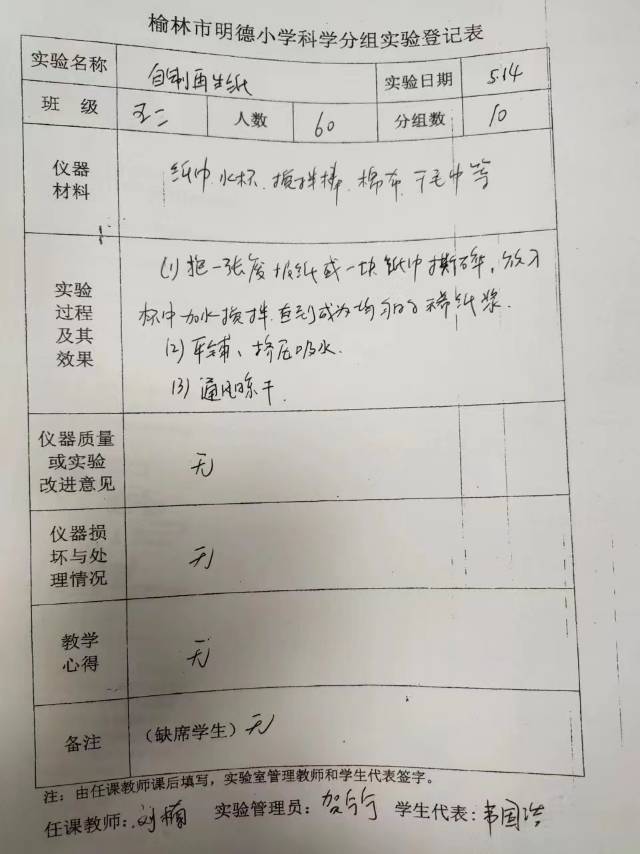 榆林市明德小学科学分组实验登记表
实验名称 自制再生纸 实验日期 5.14
班 级 五二 人数 60 分组数 10
仪器材料 纸巾、水杯、搅拌棒、棉布、干毛巾等
实验过程及其效果
(1) 把一张废报纸或一块纸巾撕碎，放入
杯中加水搅拌，直到成为均匀的稀纸浆.
(2) 平铺、挤压吸水.
(3) 通风晾干.
仪器质量或实验改进意见 无
仪器损坏与处理情况 无
教学心得 无
备注 (缺席学生) 无
注：由任课教师课后填写，实验室管理教师和学生代表签字。
任课教师：刘楠 实验管理员：贺 学生代表：韦国浩